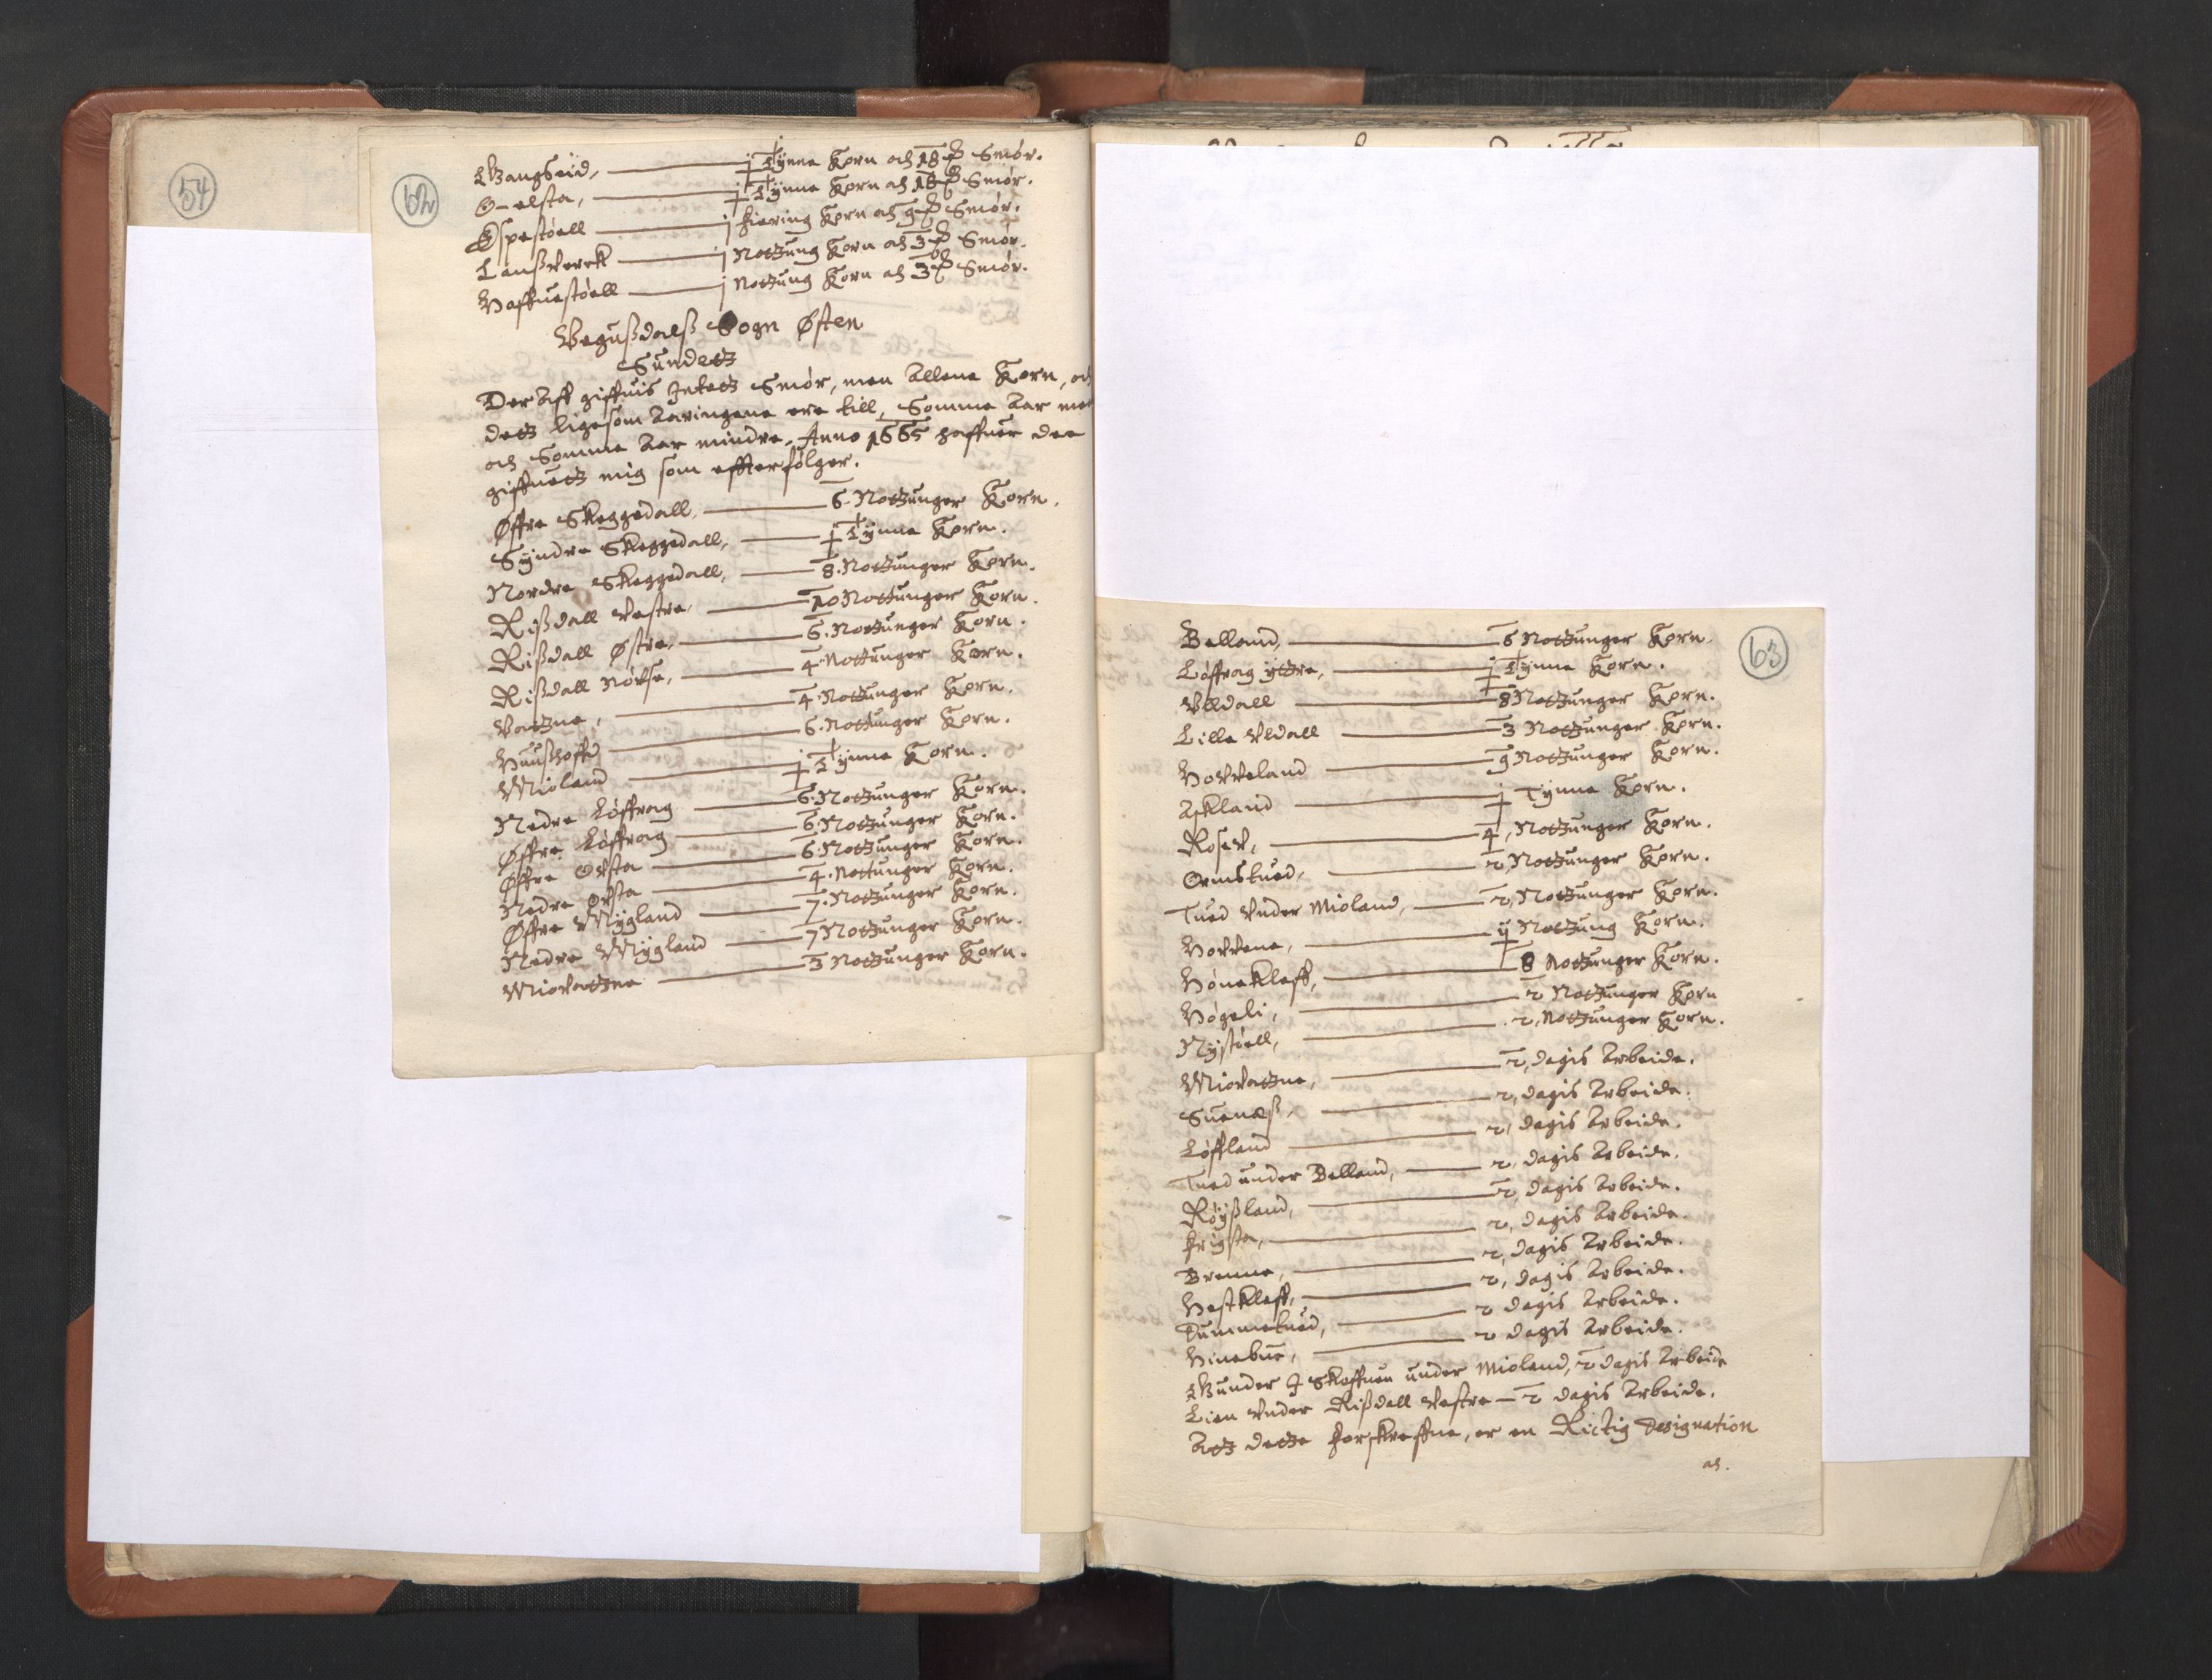 54
62
Wangseid, j Tynne Korn och 18 ℔ Smør.
O-elsta, j Tynne Korn och 18 ℔ Smør.
Espestøell j fiering Korn och 9 ℔ Smør.
Lanßverck j Notzung Korn och 3 ℔ Smør.
Haffuestøell j Notzung Korn och 3 ℔ Smør.
Vegußdalß Sogn Østen
Sundetz
Der Aff giffuis Intetz Smør, men Allene Korn, och
detz ligesom Aaringene ere till, Somme Aar mer
och Somme Aar mindre. Anno 1665 haffuer dee
giffuetz mig som effterfølger.
Øffre Skeggedall, 6. Notzunger Korn.
Syndre Skeggedall, j Tynne Korn.
Nordre Skeggedall, 8. Notzunger Korn.
Rißdall Vestre, 10 Notzunger Korn.
Rißdall Østre, 6. Notzunger Korn.
Rißdall Nørse, 4. Notzunger Korn.
Vatzne, 4. Notzunger Korn.
Huußhofft 6. Notzunger Korn.
Mioland j Tynne Korn.
Nedre Løffrag 6. Notzunger Korn.
Øffre Løffrag 6. Notzunger Korn.
Øffre Ovsta 6. Notzunger Korn.
Nedre Ovsta 4. Notzunger Korn.
Øffre Mygland 7. Notzunger Korn.
Nedre Mygland 7 Notzunger Korn.
Miovatzne 3 Notzunger Korn.
63
Belland, 6 Notzunger Korn.
Løffrag yttre, j Tynne Korn.
Vlldall 8 Notzunger Korn.
Lille Vldall 3 Notzunger Korn.
Hovveland 9 Notzunger Korn.
Askland j Tynne Korn.
Rosev, 4, Notzunger Korn.
Ormstued, 2, Notzunger Korn.
Tued Vnder Mioland, 2, Notzunger Korn.
Hovvene, ij Notzung Korn.
Hønekleff, 8 Notzunger Korn.
Høgeli, 2 Notzunger Korn
Nystøell, 2, Notzunger Korn.
Miovatzne, 2, dagis Arbeide.
Suenæß, 2, dagis Arbeide.
Løffland 2, dagis Arbeide.
Tued under Belland, 2, dagis Arbeide.
Røyßland, 2, dagis Arbeide.
Frigsta, 2, dagis Arbeide.
Brenne, 2, dagis Arbeide.
Hestkleff, 2, dagis Arbeide.
Tummetued, 2 dagis Arbeide.
Hinebue, 2 dagis Arbeide.
Wunder I Skoffuen under Mioland, 2 dagis Arbeide
Lien Vnder Rißdall Vestre 2 dagis Arbeide.
Att dette forskreffne, er en Rictig Designation
och.